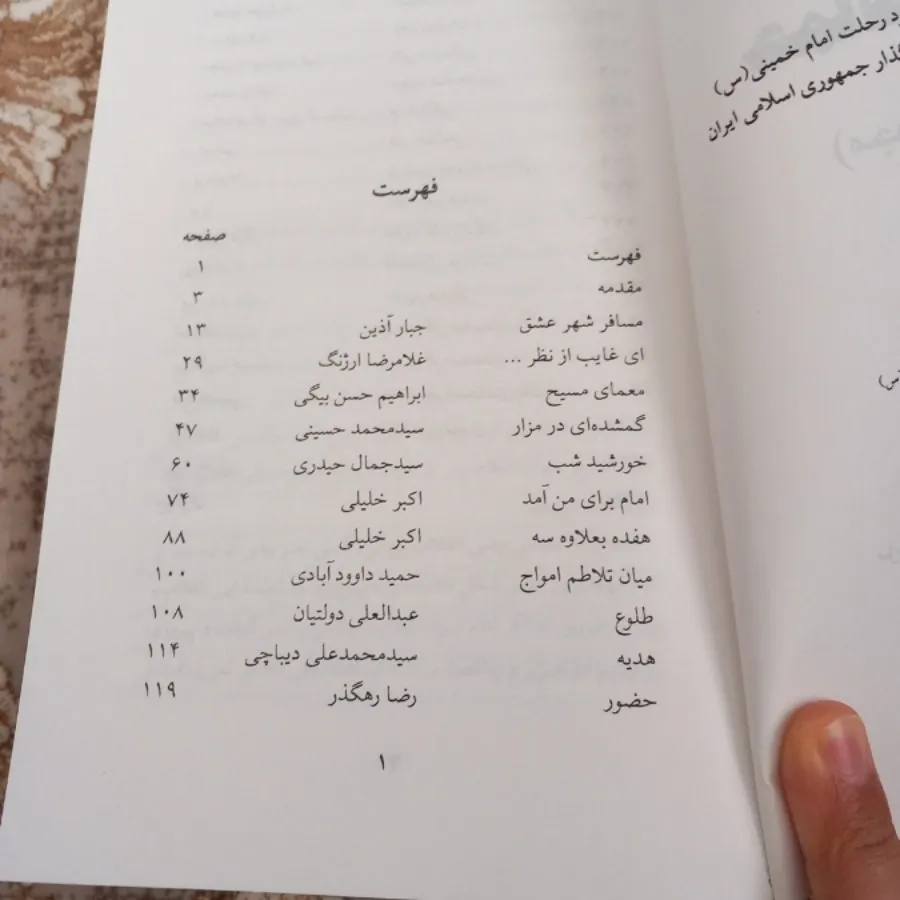 رحلت امام خمینی(س)
جمهوری اسلامی ایران
فهرست
صفحه
فهرست ۱
مقدمه ۳
مسافر شهر عشق جبار آذین ۱۳
ای غایب از نظر ... غلامرضا ارژنگ ۲۹
معمای مسیح ابراهیم حسن بیگی ۳۴
گمشده‌ای در مزار سیدمحمد حسینی ۴۷
خورشید شب سیدجمال حیدری ۶۰
امام برای من آمد اکبر خلیلی ۷۴
هفده بعلاوه سه اکبر خلیلی ۸۸
میان تلاطم امواج حمید داوود آبادی ۱۰۰
طلوع عبدالعلی دولتیان ۱۰۸
هدیه سیدمحمدعلی دیباچی ۱۱۴
حضور رضا رهگذر ۱۱۹
۱